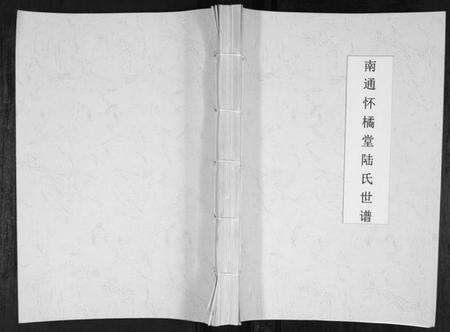 南通怀橘堂陆氏世谱